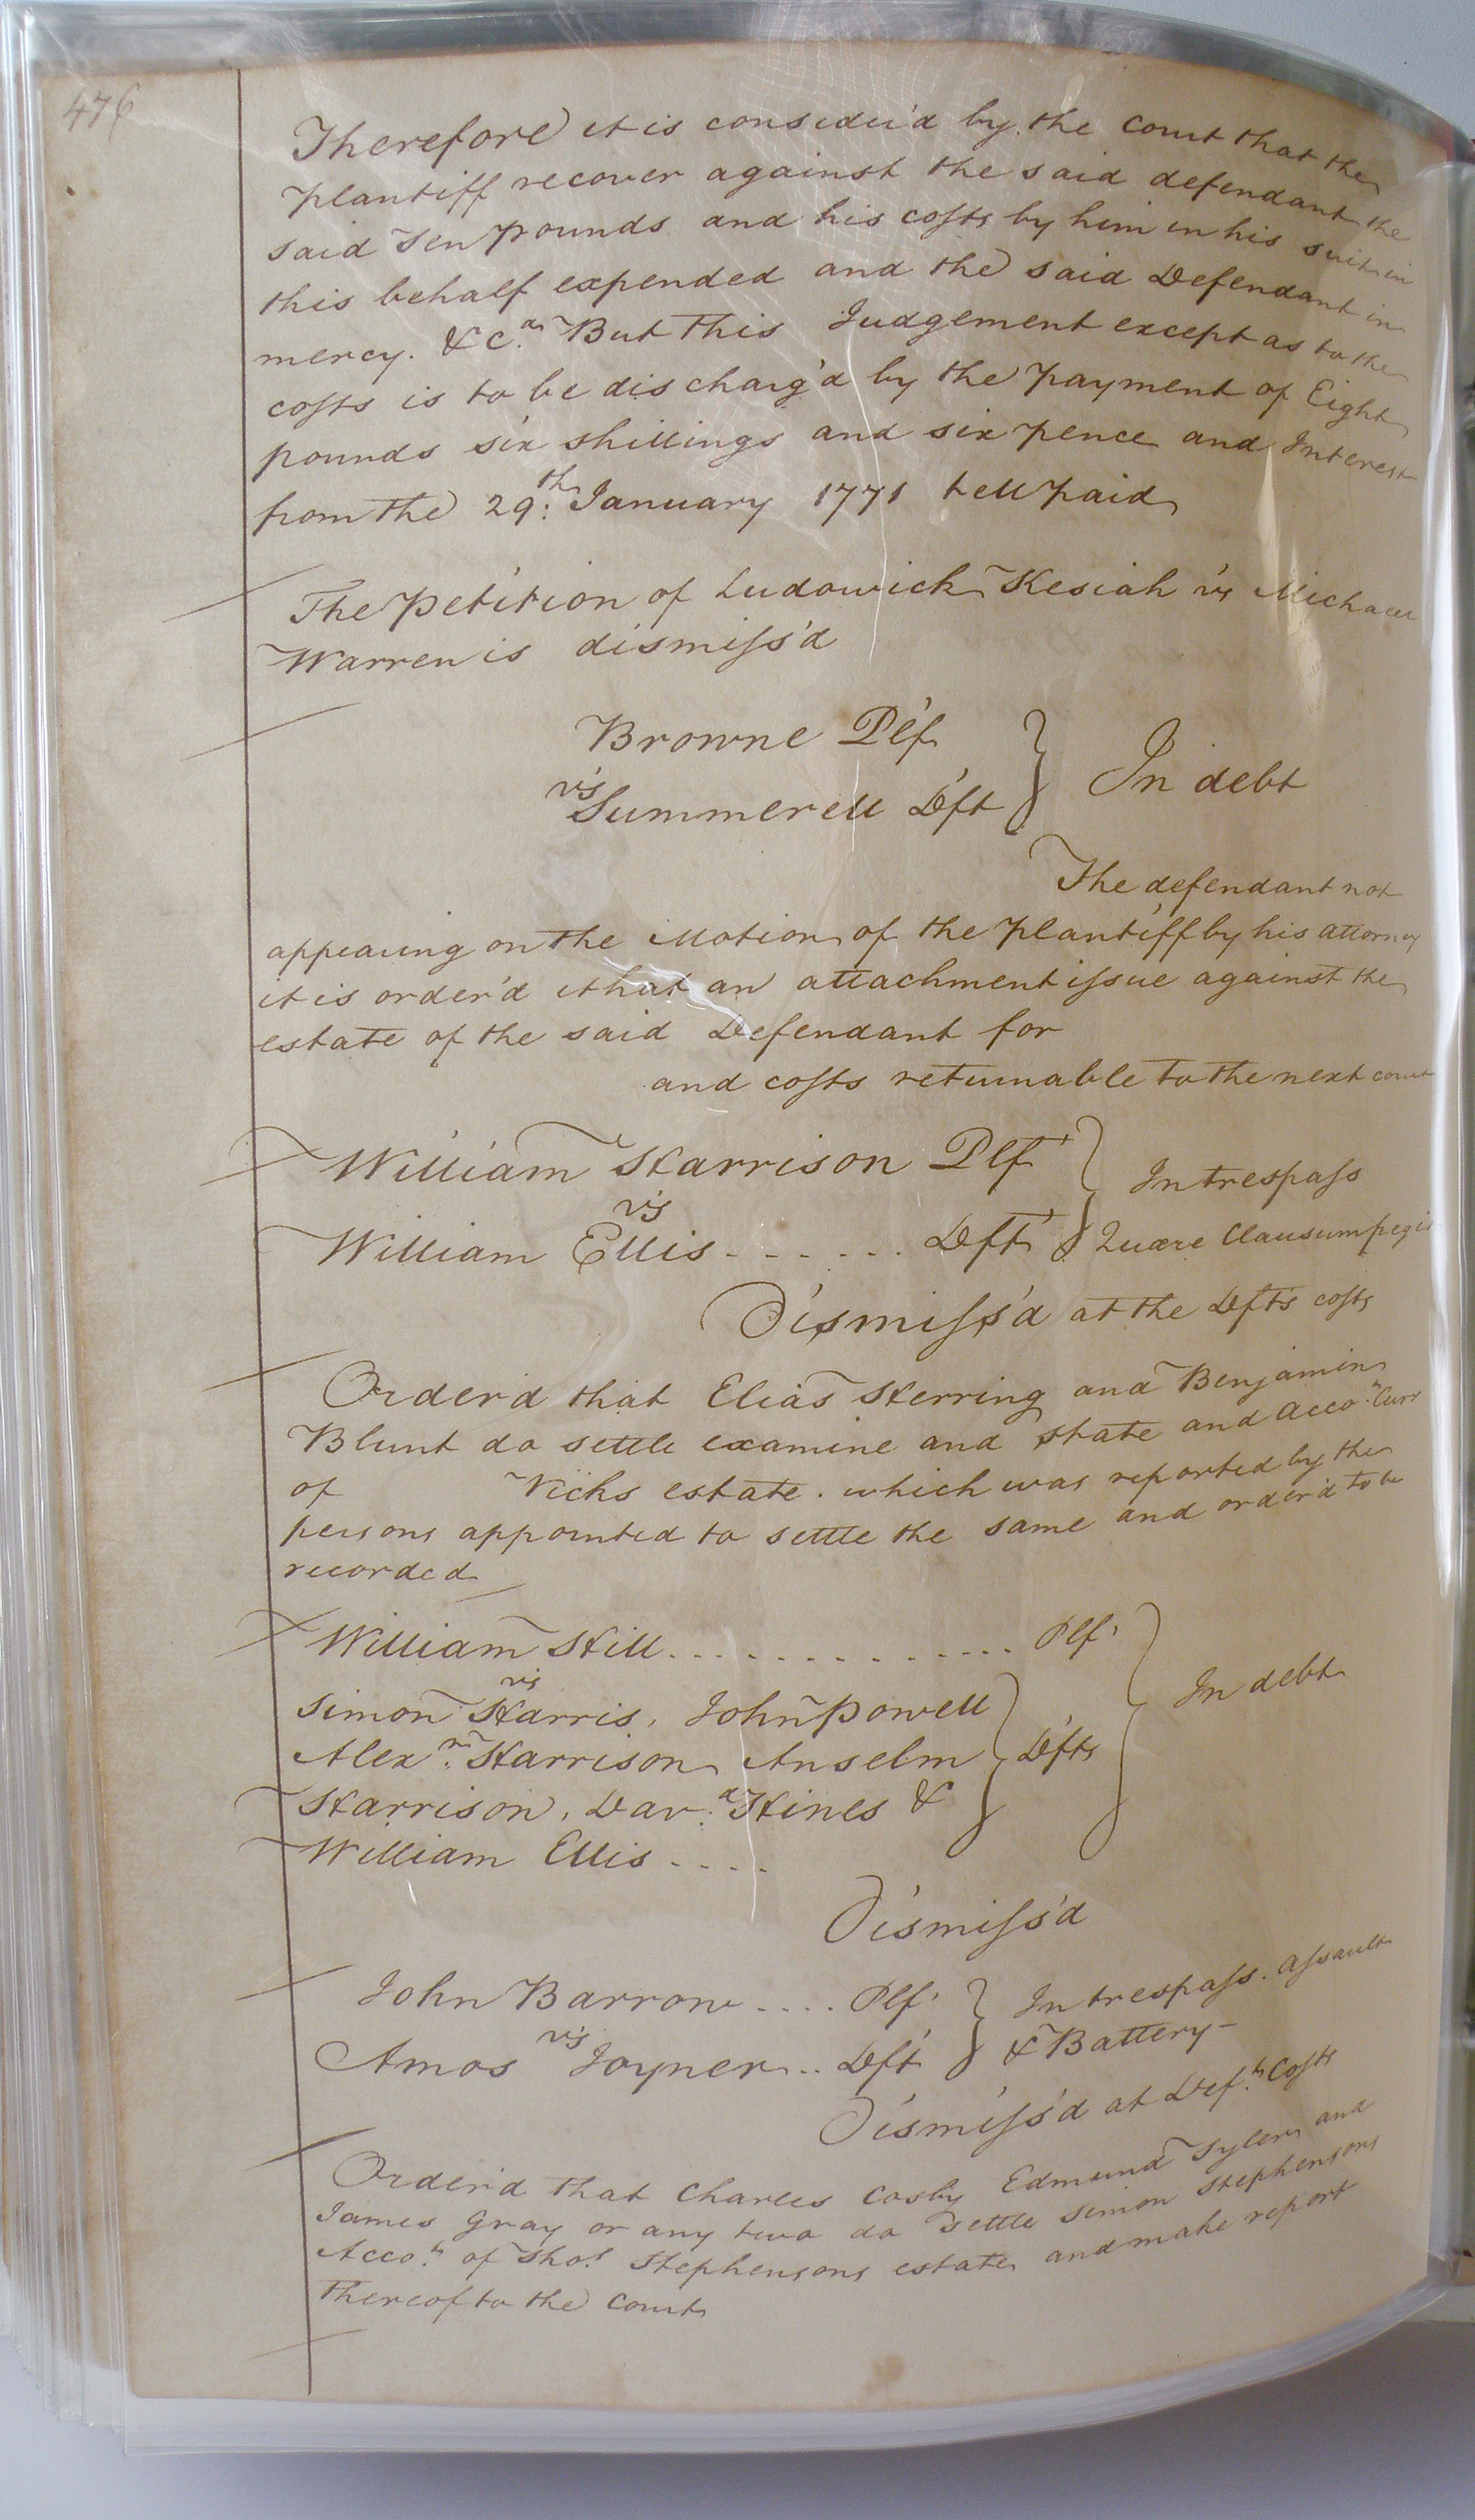 476
Therefore it is consider'd by the Court that the
plantiff recover against the said defendant the
said Ten pounds and his costs by him in his suit in
this behalf expended and the said Defendant in
mercy. &c.a But this Judgement except as to the
costs is to be discharg'd by the payment of Eight
pounds six shillings and six pence and Interest
from the 29.th January 1771 till paid
The petition of Ludowick Kesiah vs Michael
Warren is dismiss'd
Browne Plf
vs
Summerell Dft } In debt
The defendant not
appearing on the Motion of the plantiff by his attorney
it is order'd that an attachment issue against the
estate of the said Defendant for
and costs returnable to the next court
William Harrison Plf } In trespass
vs
William Ellis - - - - - - - Dft } Quare Clausum fregit
Dismiss'd at the Dfts costs
Order'd that Elias Herring and Benjamin
Blunt do settle examine and state and Acco.t Curr
of Vicks estate. which was reported by the
persons appointed to settle the same and order'd to be
recorded
William Hill. . . . . . . . . . . . . . Plf
vs
Simon Harris, John Powell
Alex.r Harrison Anselm } Dfts } In debt
Harrison, Dav.d Hines &
William Ellis - - - -
Dismiss'd
John Barrow - - - - Plf } In trespass. assault
vs
Amos Joyner . . Dft } & Battery -
Dismiss'd at Def.ts Costs
Order'd that Charles Cosby Edmund Tyler and
James Gray or any two do settle Simon Stephensons
Acco.t of Tho.s Stephensons estate and make report
thereof to the Court